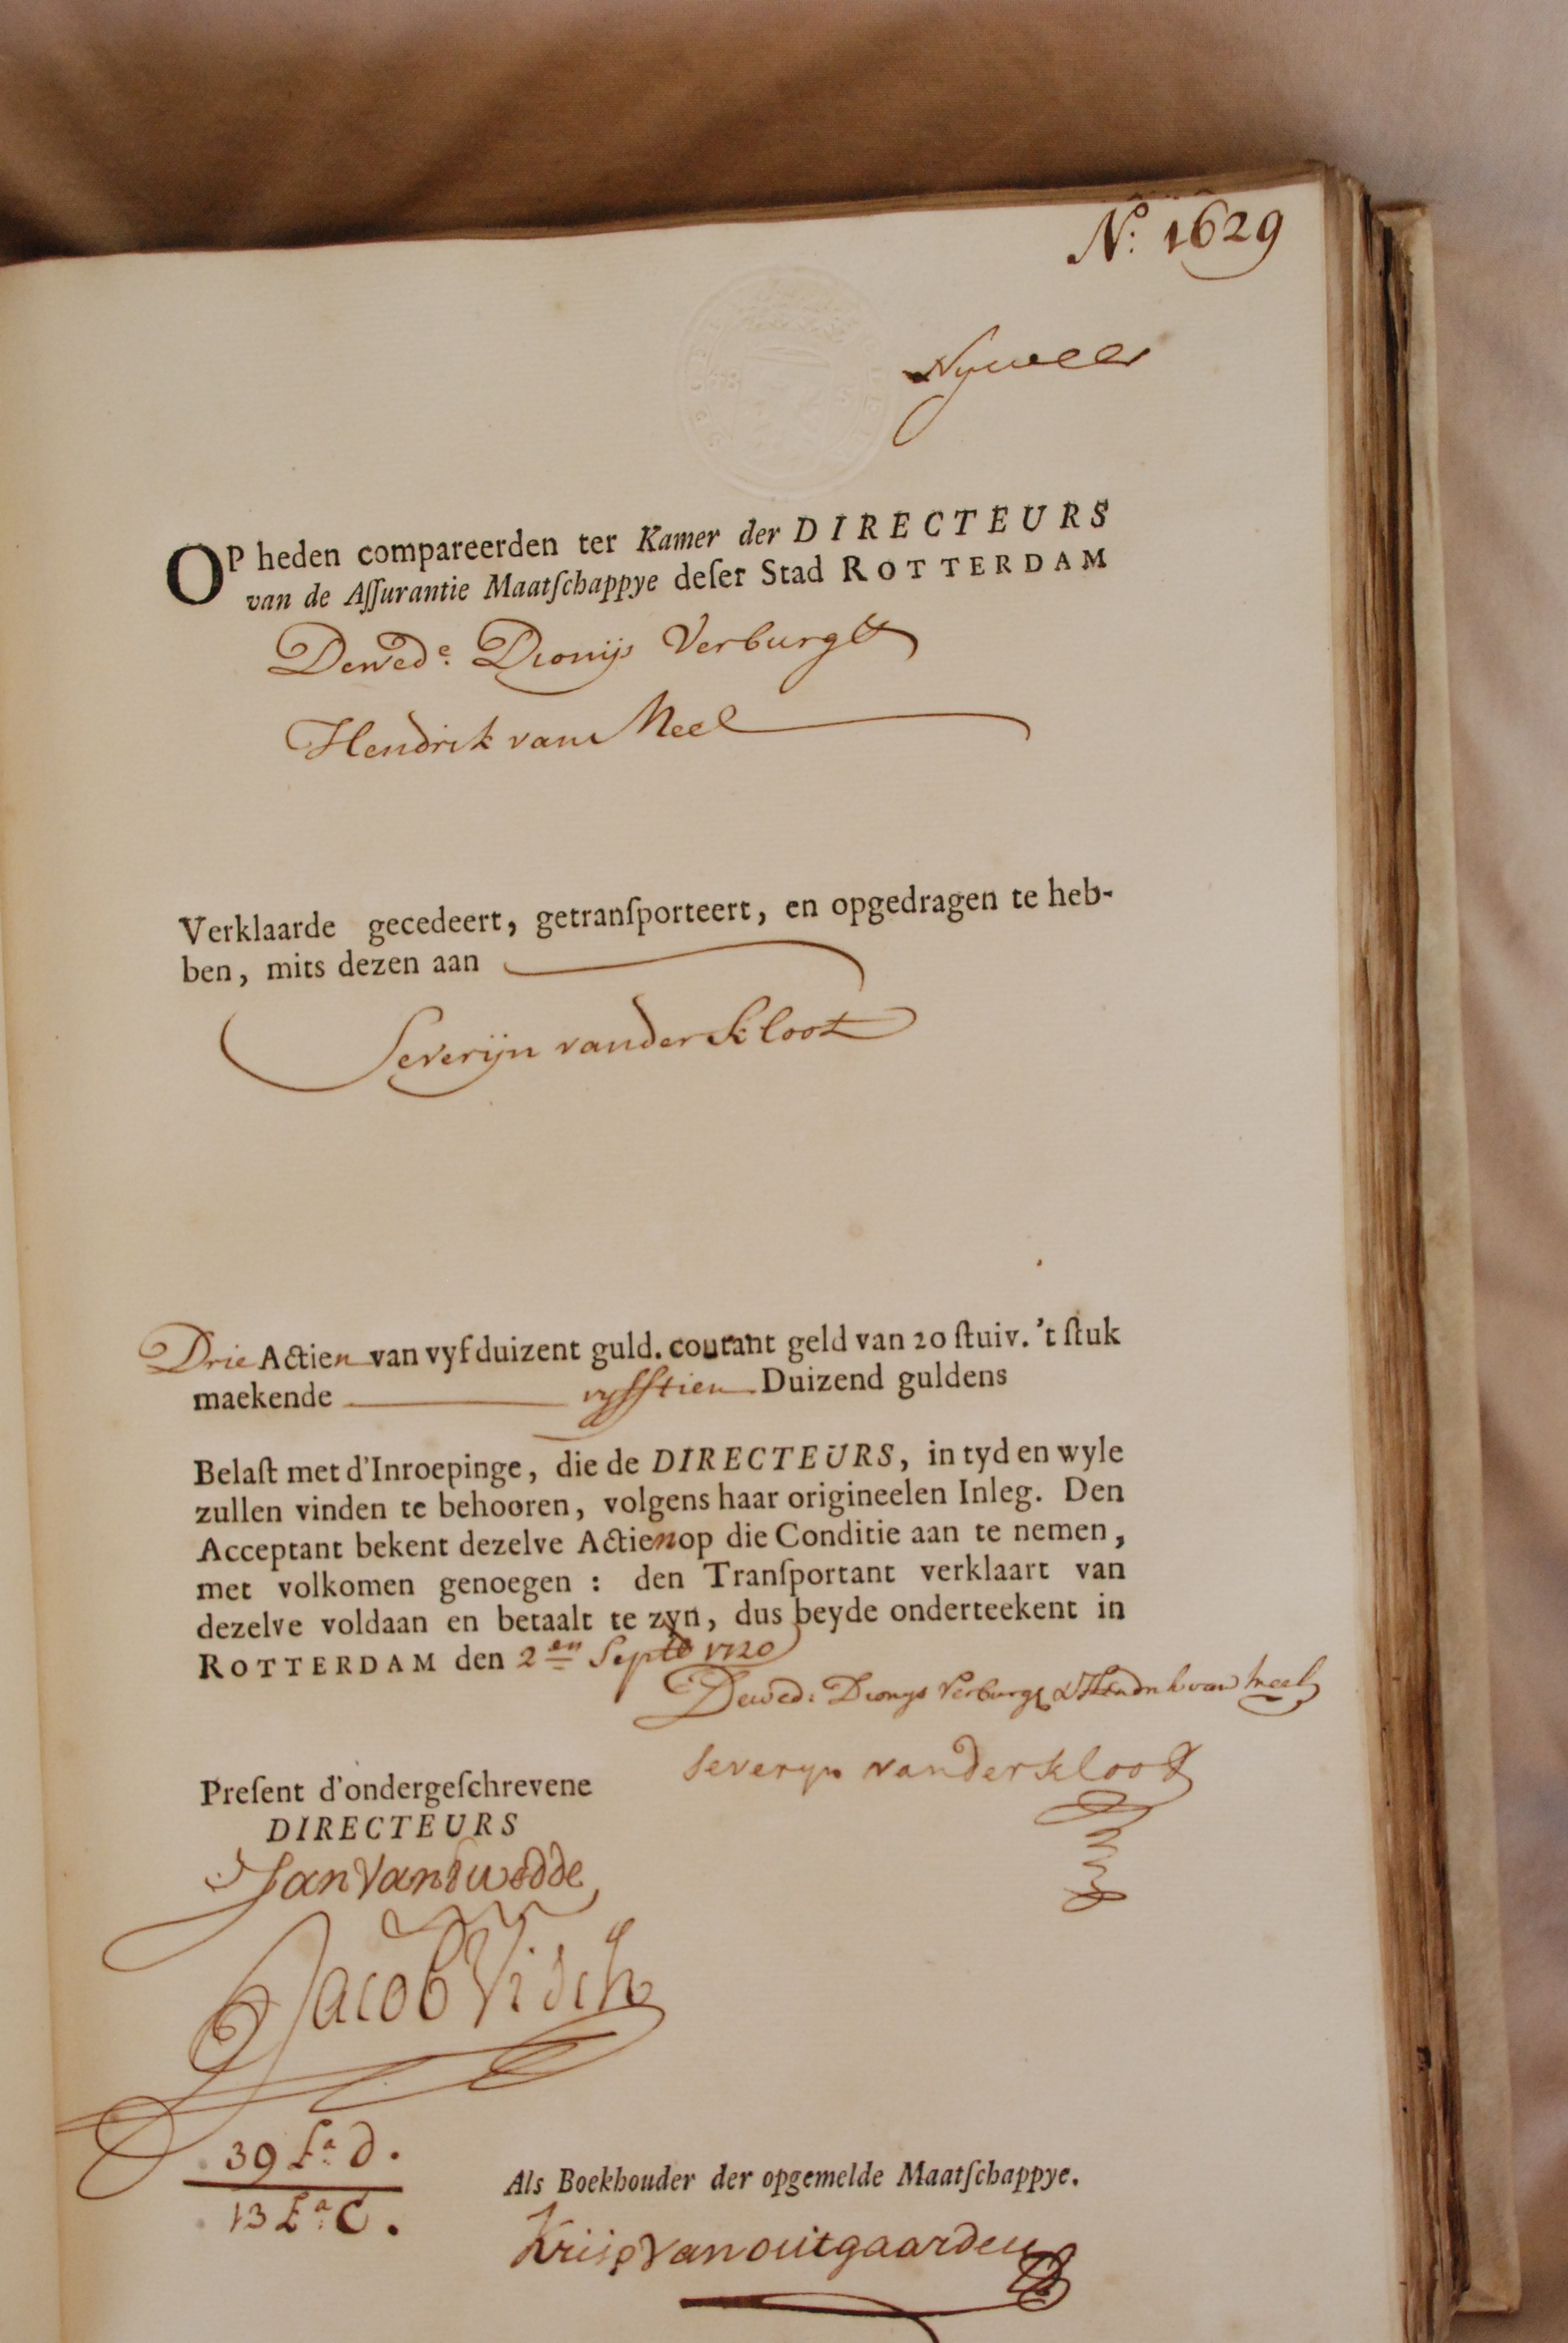 No. 1629
OP heden compareerden ter Kamer der DIRECTEURS
van de Aſſurantie Maatſchappye deſer Stad ROTTERDAM
Dewede. Dionijs Verburgh
Hendrik van Meel
Verklaarde gecedeert, getranſporteert, en opgedragen te heb-
ben, mits dezen aan
Severijn vander Kloot
Drie Actien van vyfduizent guld. courant geld van 20 ſtuiv. 't ſtuk
maekende vyfftien Duizend guldens
Belaſt met d'Inroepinge, die de DIRECTEURS, in tyd en wyle
zullen vinden te behooren, volgens haar origineelen Inleg. Den
Acceptant bekent dezelve Actien op die Conditie aan te nemen,
met volkomen genoegen : den Tranſportant verklaart van
dezelve voldaan en betaalt te zyn, dus beyde onderteekent in
ROTTERDAM den 2en Septb 1720
Dewed: Dionys Verburgh & Hendrik van Meel
Severyn vander Kloot
Preſent d'ondergeſchrevene
DIRECTEURS
Jan Van
Jacob Visch
39 La d.
13 La C.
Als Boekhouder der opgemelde Maatſchappye.
Krisp Van outgaarden